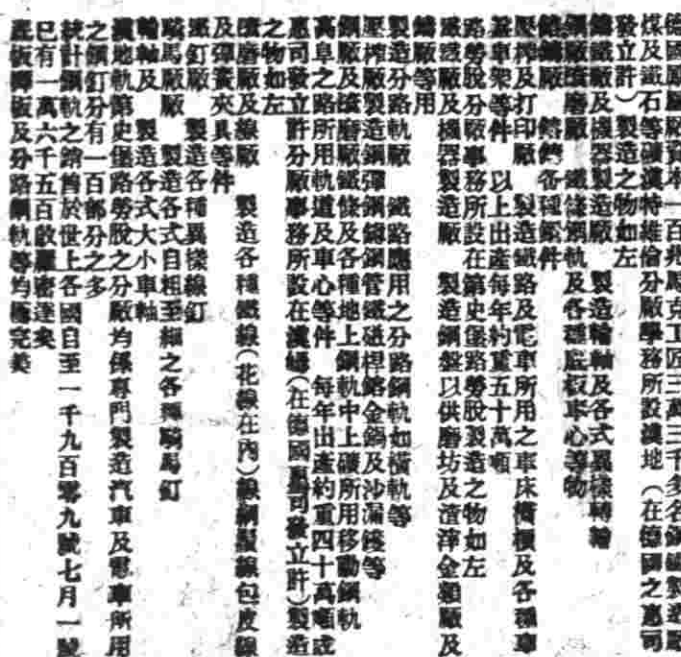 德國鳳凰廠資本一百兆馬克工匠三萬三千多名鋼鐵製造廠
煤及鐵石等礦漢特維倫分廠事務所設漢地（在德國之惠司
發立許）製造之物如左
鑄鐵廠及機器製造廠　製造輪軸及各式異樣轉輪
鋼廠磨廠　鐵條鋼軌及各種底板車心等物
鎔鑄廠　鎔鑄各種鎔件
壓榨及打印廠　製造鐵路及電車所用之車床橫檟及各種車
蓋車架等件　以上出產每年約重五十萬噸
路勞脫分廠事務所設在第史堡路勞脫製造之物如左
鑄鐵廠及機器製造廠　製造鋼盤以供磨坊及渣滓金類廠及
鑄廠等用
製造分路軌廠　鐵路應用之分路鋼軌如橫軌等
壓榨廠製造鋼彈鋼鎔鋼管鐵磁桿鎔金鍋及沙漏鏝等
鋼廠及磨廠鐵條及各種地上鋼軌中上礦所用移動鋼軌
高阜之路所用軌道及車心等件　每年出產約重四十萬噸或
惠司發立許分廠事務所設在漢（在德國惠司發立許）製造
之物如左
磨廠及線廠　製造各種鐵線（花線在內）線鋼髮線包皮線
及彈簧夾具等件
線釘廠　製造各種異樣線釘
騎馬廠廠　製造各式自粗至細之各種騎馬釘
輪軸及　製造各式大小車軸
漢地軌第史堡路勞脫之分廠均係專門製造汽車及電車所用
之鋼釘分有一百部分之多
統計鋼軌之銷售於世上各國自至一千九百零九號七月一號
已有一萬六千五百啟羅密達矣
底板彈板及分路鋼軌等均極完美